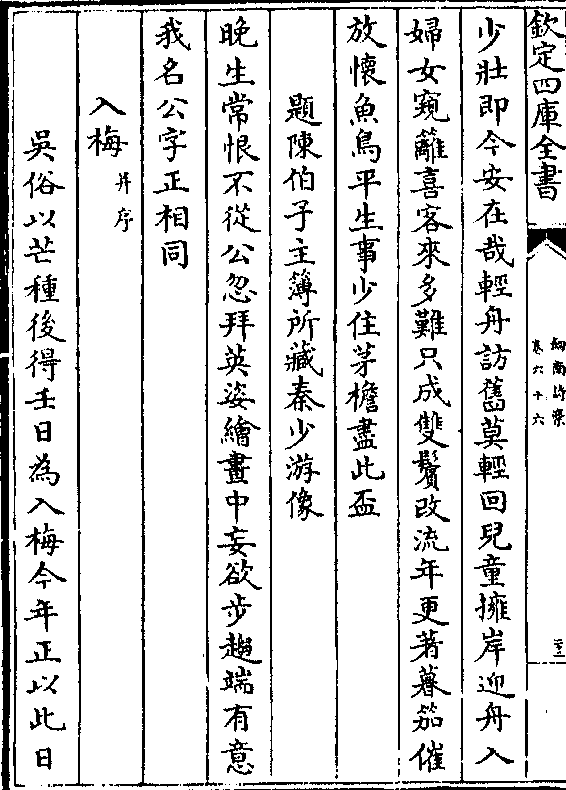 欽定四庫全書
劍南詩藁
卷六十六
少壯即今安在哉輕舟訪舊莫輕回兒童擁岸迎舟入
婦女窺籬喜客來多難只成雙鬢改流年更著暮笳催
放懷魚鳥平生事少住茅檐盡此盃
題陳伯予主簿所藏秦少游像
晚生常恨不從公忽拜英姿繪畫中妄欲步趨端有意
我名公字正相同
入梅 并序
吳俗以芒種後得壬日為入梅今年正以此日